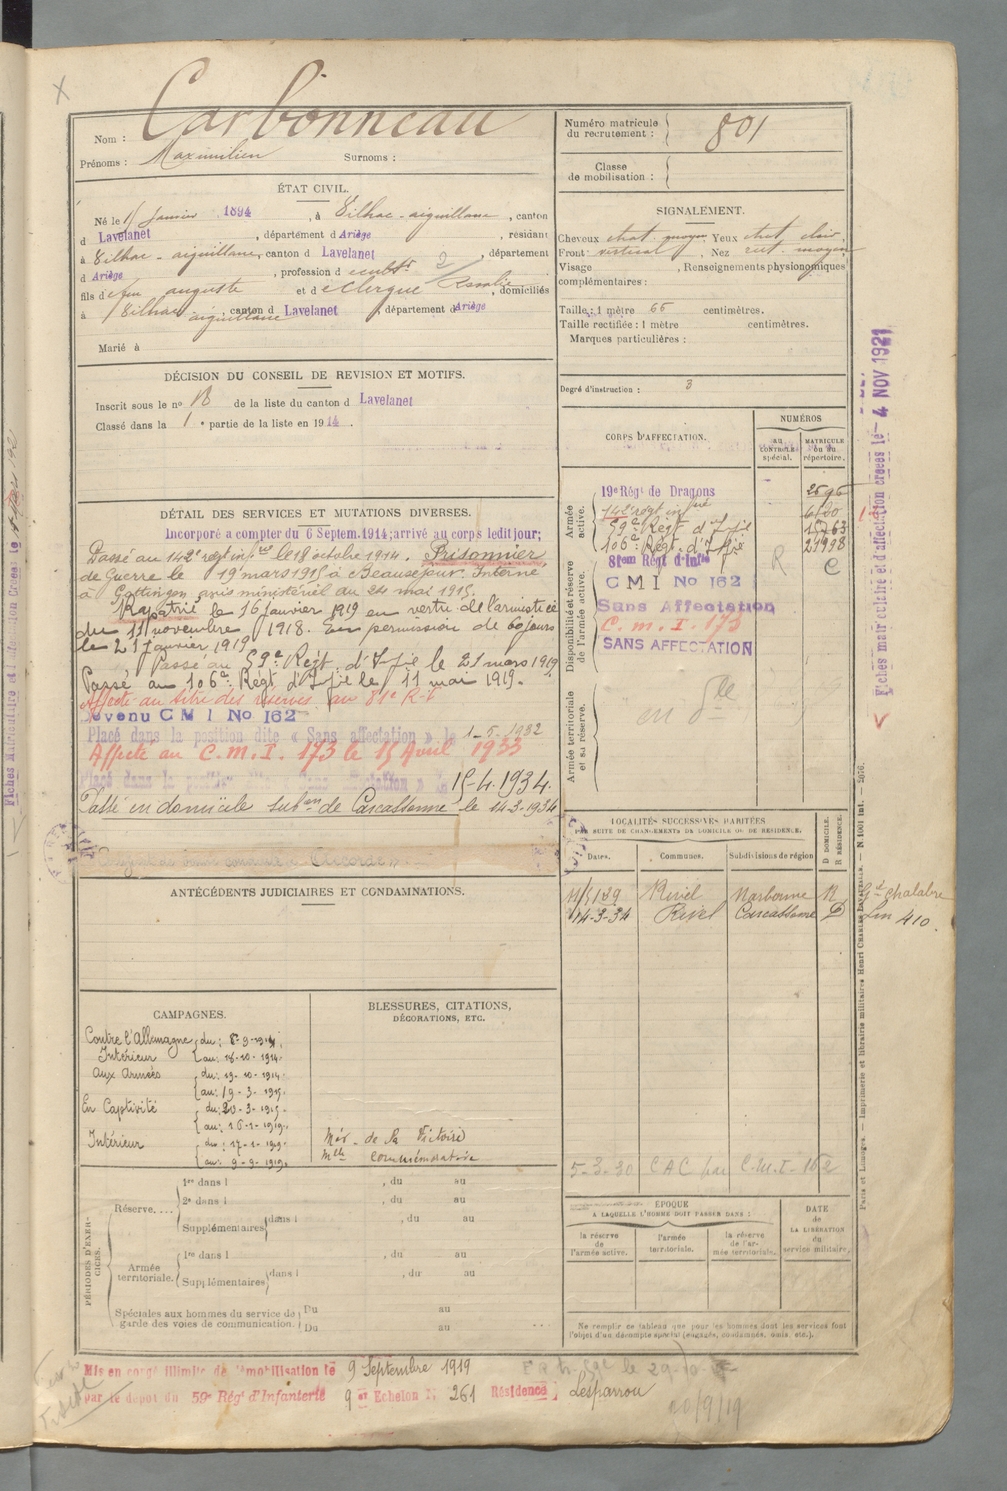 Nom : Carbonneau
Prénoms : Maximilien Surnoms :
Numéro matricule du recrutement : 801
Classe de mobilisation :
ÉTAT CIVIL.
Né le 1er Janvier 1894, à Vilhac-aiguillane, canton
d Lavelanet, département d Ariège, résidant
à Vilhac-aiguillane, canton d Lavelanet, département
d Ariège, profession d cultr
fils d feu auguste et d e Clergue Rosalie, domiciliés
à Vilhac aiguillane, canton d Lavelanet, département d Ariège
Marié à
SIGNALEMENT.
Cheveux chat. moyen Yeux chat. clair
Front vertical, Nez rect. moyen
Visage , Renseignements physionomiques
complémentaires :
Taille : 1 mètre 66 centimètres.
Taille rectifiée : 1 mètre centimètres.
Marques particulières :
Degré d'instruction : 3
DÉCISION DU CONSEIL DE REVISION ET MOTIFS.
Inscrit sous le no 13 de la liste du canton d Lavelanet
Classé dans la 1e partie de la liste en 1914.
CORPS D'AFFECTATION.
NUMÉROS
AU CONTRÔLE spécial.
MATRICULE ou du répertoire.
Armée active.
19e Régt de Dragons
142e régt infie
59e Régt d'Infie
106e Régt d'Infie
Disponibilité et réserve de l'armée active.
81em Régt d'Infie R C
CMI No 162
Sans Affectation
C. m. I. 173
SANS AFFECTATION
Armée territoriale et sa réserve.
DÉTAIL DES SERVICES ET MUTATIONS DIVERSES.
Incorporé à compter du 6 Septem. 1914; arrivé au corps ledit jour;
Passé au 142e régt infie le 18 octobre 1914. Prisonnier
de Guerre le 19 mars 1915 à Beauséjour. Interné
à Gottingen avis ministériel du 24 mai 1915.
Rapatrié le 16 Janvier 1919 en vertu de l'armistice
du 11 novembre 1918. En permission de 60 jours
le 21 janvier 1919
Passé au 59e Régt d'Infie le 21 mars 1919
Passé au 106e Régt d'Infie le 11 mai 1919.
Affecté au titre des réserves au 81e R.I
Devenu CMI No 162
Placé dans la position dite « Sans affectation » le 1-5-1932
Affecté au C.m.I. 173 le 15 Avril 1933
Placé dans la position dite « Sans affectation » le 15-4-1934.
Passé en domicile subon de Carcassonne le 14-3-1934
LOCALITÉS SUCCESSIVES HABITÉES
PAR SUITE DE CHANGEMENTS DE DOMICILE OU DE RÉSIDENCE.
Dates. Communes. Subdivisions de région D DOMICILE. R RÉSIDENCE.
Rivel Narbonne R
14-3-34 Rivel Carcassonne D
Gde chalabre
Lin 410.
5-3-30 CAC par C.M.I-162
ANTÉCÉDENTS JUDICIAIRES ET CONDAMNATIONS.
CAMPAGNES.
Contre l'Allemagne
Intérieur du : 6-9-1914. au : 18-10-1914.
Aux Armées du : 19-10-1914. au : 19-3-1915.
En Captivité du : 20-3-1915. au : 16-1-1919.
Intérieur du : 17-1-1919. au : 9-9-1919.
BLESSURES, CITATIONS, DÉCORATIONS, ETC.
Méd. de la Victoire
Mlle commémorative
PÉRIODES D'EXERCICES.
Réserve....
1re dans l , du au
2e dans l , du au
Supplémentaires dans l , du au
Armée territoriale.
1re dans l , du au
Supplémentaires dans l , du au
Spéciales aux hommes du service de garde des voies de communication.
Du au
Du au
ÉPOQUE
A LAQUELLE L'HOMME DOIT PASSER DANS :
la réserve de l'armée active.
l'armée territoriale.
la réserve de l'armée territoriale.
DATE de LA LIBÉRATION du service militaire.
Ne remplir ce tableau que pour les hommes dont les services font
l'objet d'un décompte spécial (engagés, condamnés, omis, etc.).
Mis en congé illimité de démobilisation le 9 Septembre 1919
par le dépôt du 59e Régt d'Infanterie 9e Echelon No 261 Résidence Lesparrou
20/9/19
Fiches matriculaire et d'affectation créées le 4 NOV 1921
Paris et Limoges. — Imprimerie et librairie militaires Henri CHARLES-LAVAUZELLE. — N. 1001 int.